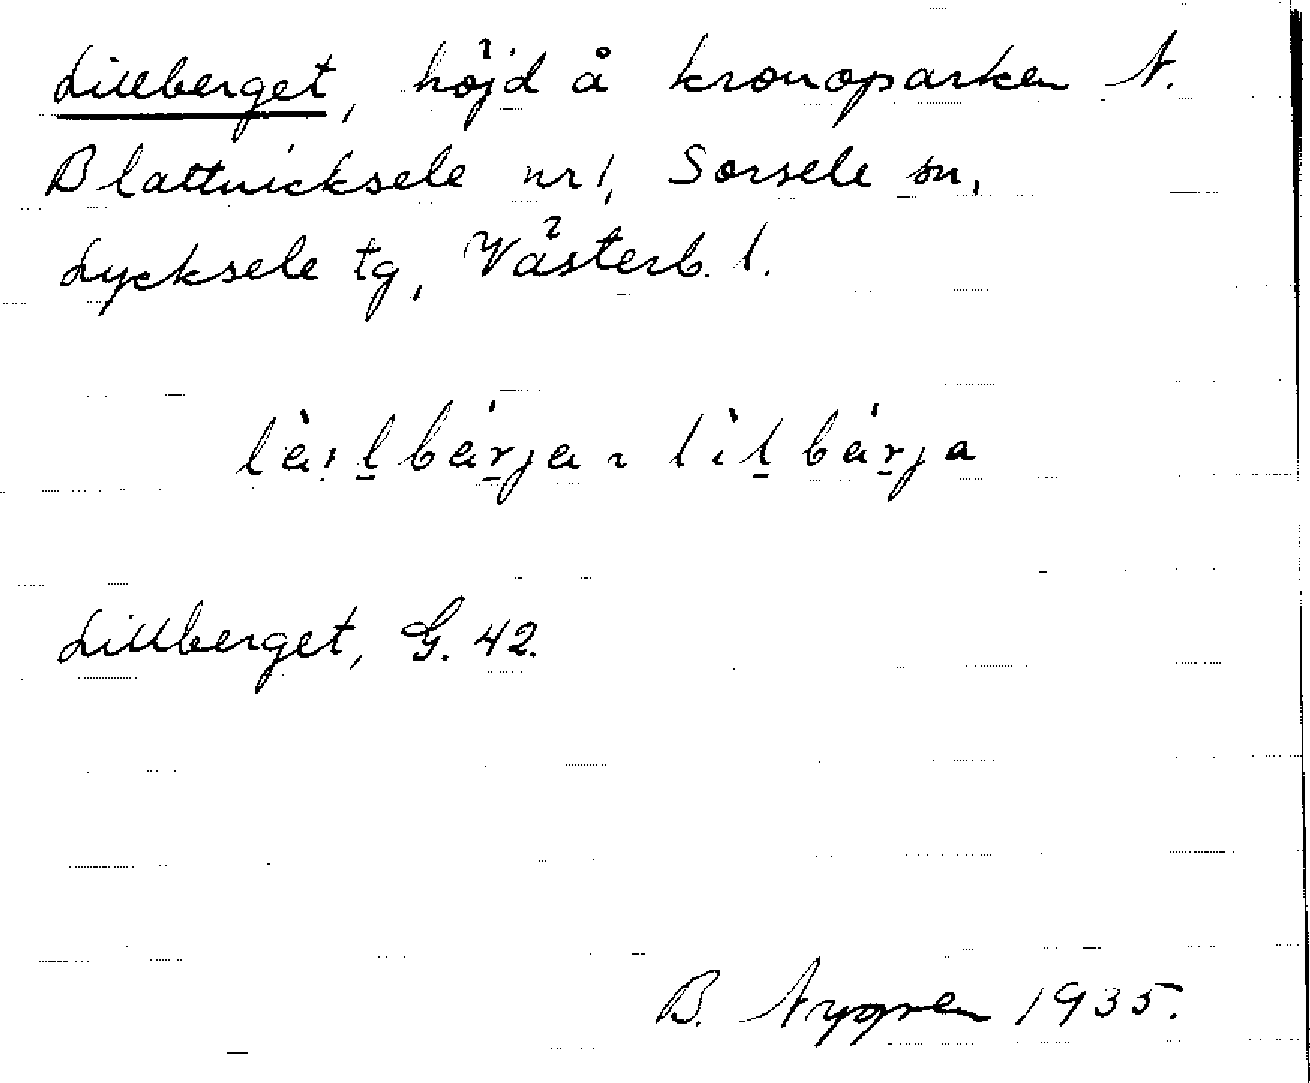 Lillberget, höjd å kronoparken N.
Blattnicksele nr 1, Sorsele sn,
Lycksele tg, Västerb. l.
làılbárja ~ lìlbárja
Lillberget, G. 42.
B. Nygren 1935.